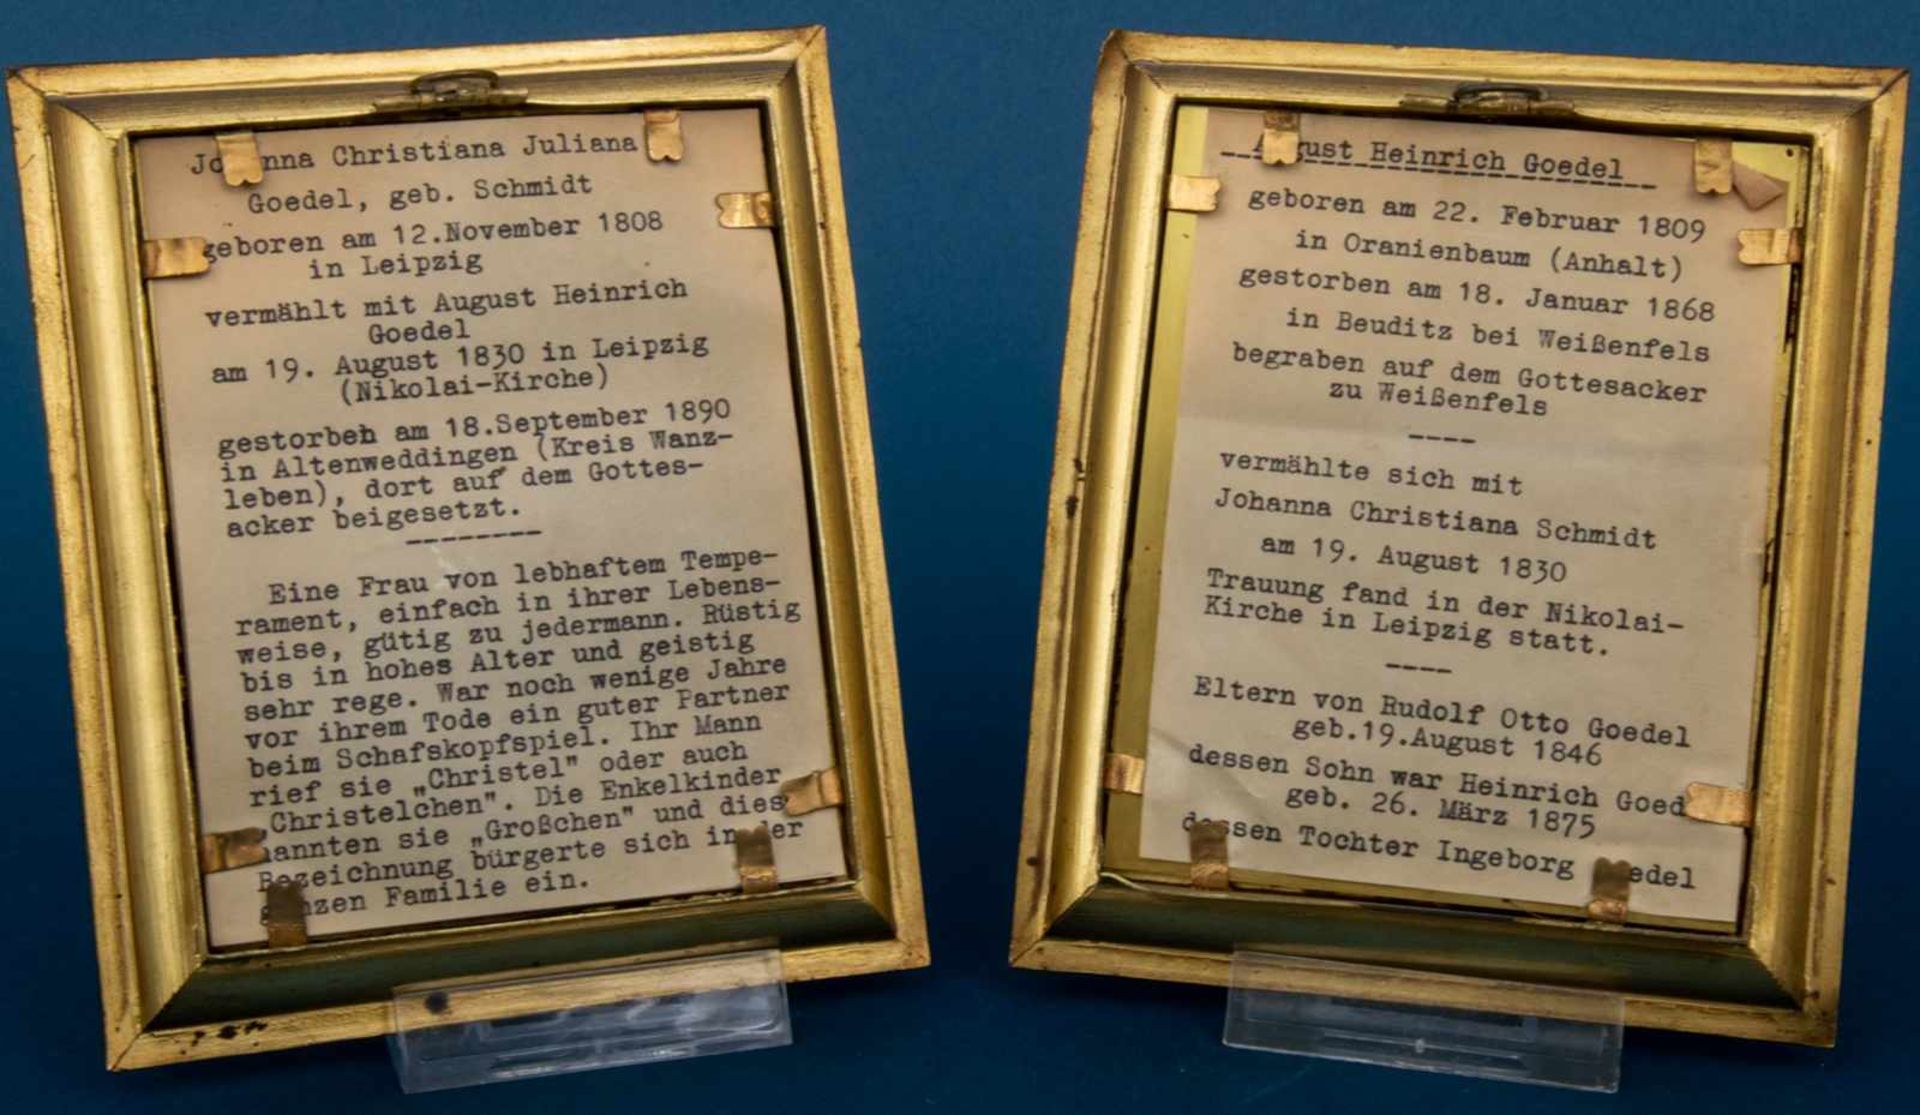 Johanna Christiana Juliana
Goedel, geb. Schmidt
geboren am 12.November 1808
in Leipzig
vermählt mit August Heinrich
Goedel
am 19. August 1830 in Leipzig
(Nikolai-Kirche)
gestorbeh am 18.September 1890
in Altenweddingen (Kreis Wanz-
leben), dort auf dem Gottes-
acker beigesetzt.
--------
Eine Frau von lebhaftem Tempe-
rament, einfach in ihrer Lebens-
weise, gütig zu jedermann. Rüstig
bis in hohes Alter und geistig
sehr rege. War noch wenige Jahre
vor ihrem Tode ein guter Partner
beim Schafskopfspiel. Ihr Mann
rief sie „Christel" oder auch
„Christelchen". Die Enkelkinder
nannten sie „Großchen" und diese
Bezeichnung bürgerte sich in der
ganzen Familie ein.
August Heinrich Goedel
geboren am 22. Februar 1809
in Oranienbaum (Anhalt)
gestorben am 18. Januar 1868
in Beuditz bei Weißenfels
begraben auf dem Gottesacker
zu Weißenfels
----
vermählte sich mit
Johanna Christiana Schmidt
am 19. August 1830
Trauung fand in der Nikolai-
Kirche in Leipzig statt.
----
Eltern von Rudolf Otto Goedel
geb.19.August 1846
dessen Sohn war Heinrich Goedel
geb. 26. März 1875
dessen Tochter Ingeborg Goedel